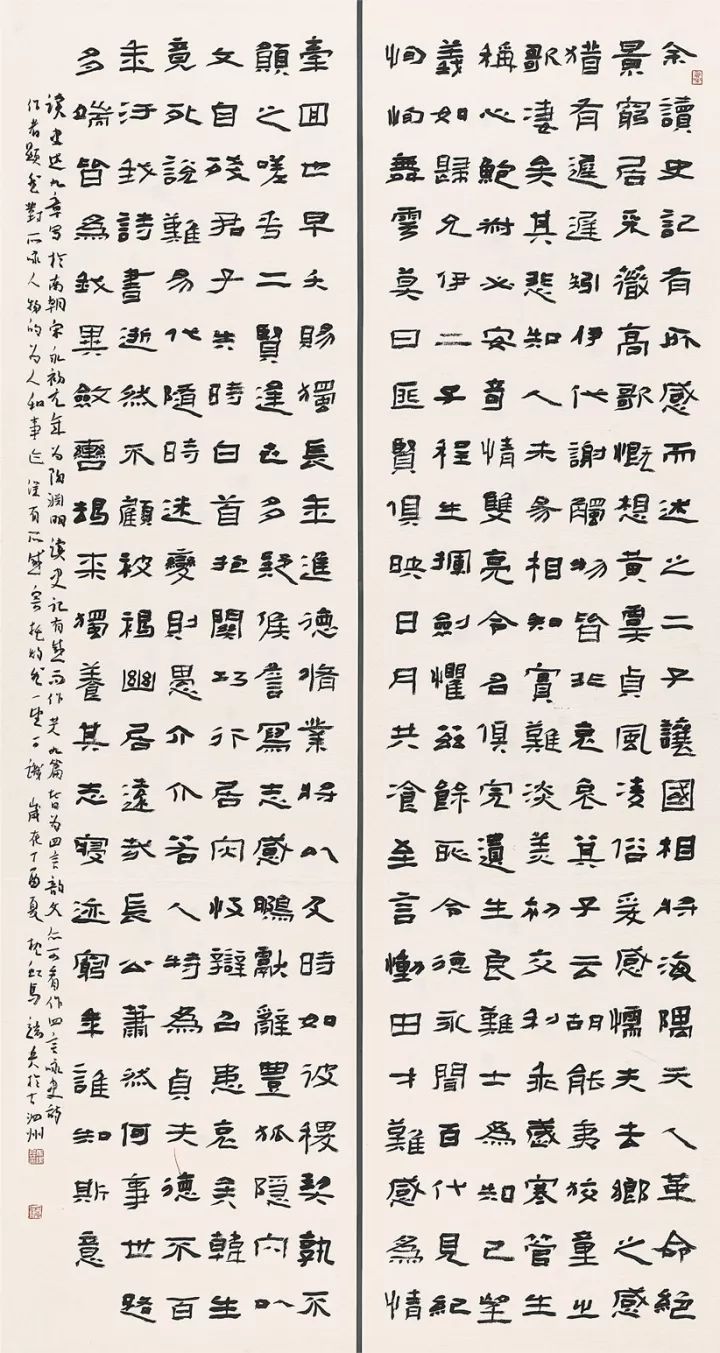 余讀史記有所感而述之二子讓國相將海隅天人革命絕
景窮居采薇高歌慨想黃虞貞風凌俗爰感懦夫去鄉之感
猶有遲遲矧伊代謝觸物皆非哀哀其子云胡能夷狡童之
歌淒矣其悲知人未易相知實難淡美初交利乖歲寒管生
稱心鮑叔必安奇情雙亮令名俱完遺生良難士為知己望
義如歸允伊二子程生揮劍懼茲餘恥令德永聞百代見紀
恂恂舞雩莫曰匪賢俱映日月共飡至言慟由才難感為情
牽回也早夭賜獨長年進德脩業將以及時如彼稷契孰不
願之嗟乎二賢逢世多疑候詹寫志感鵩獻辭豐狐隱穴以
文自殘君子失時白首抱關巧行居災忮辯召患哀矣韓生
竟死說難易代隨時迷變則愚介介若人特為貞夫德不百
年汙我詩書逝然不顧被褐幽居遠哉長公蕭然何事世路
多端皆為我異斂轡朅來獨養其志寢迹窮年誰知斯意
讀史述九章寫於南朝宋永初元年為陶淵明讀史記有感而作共九篇皆為四言韻文亦可看作四言詠史詩
作者顯然對所詠人物的為人和事迹深有所感寄托灼然一望可識 歲在丁酉夏 於古泗州